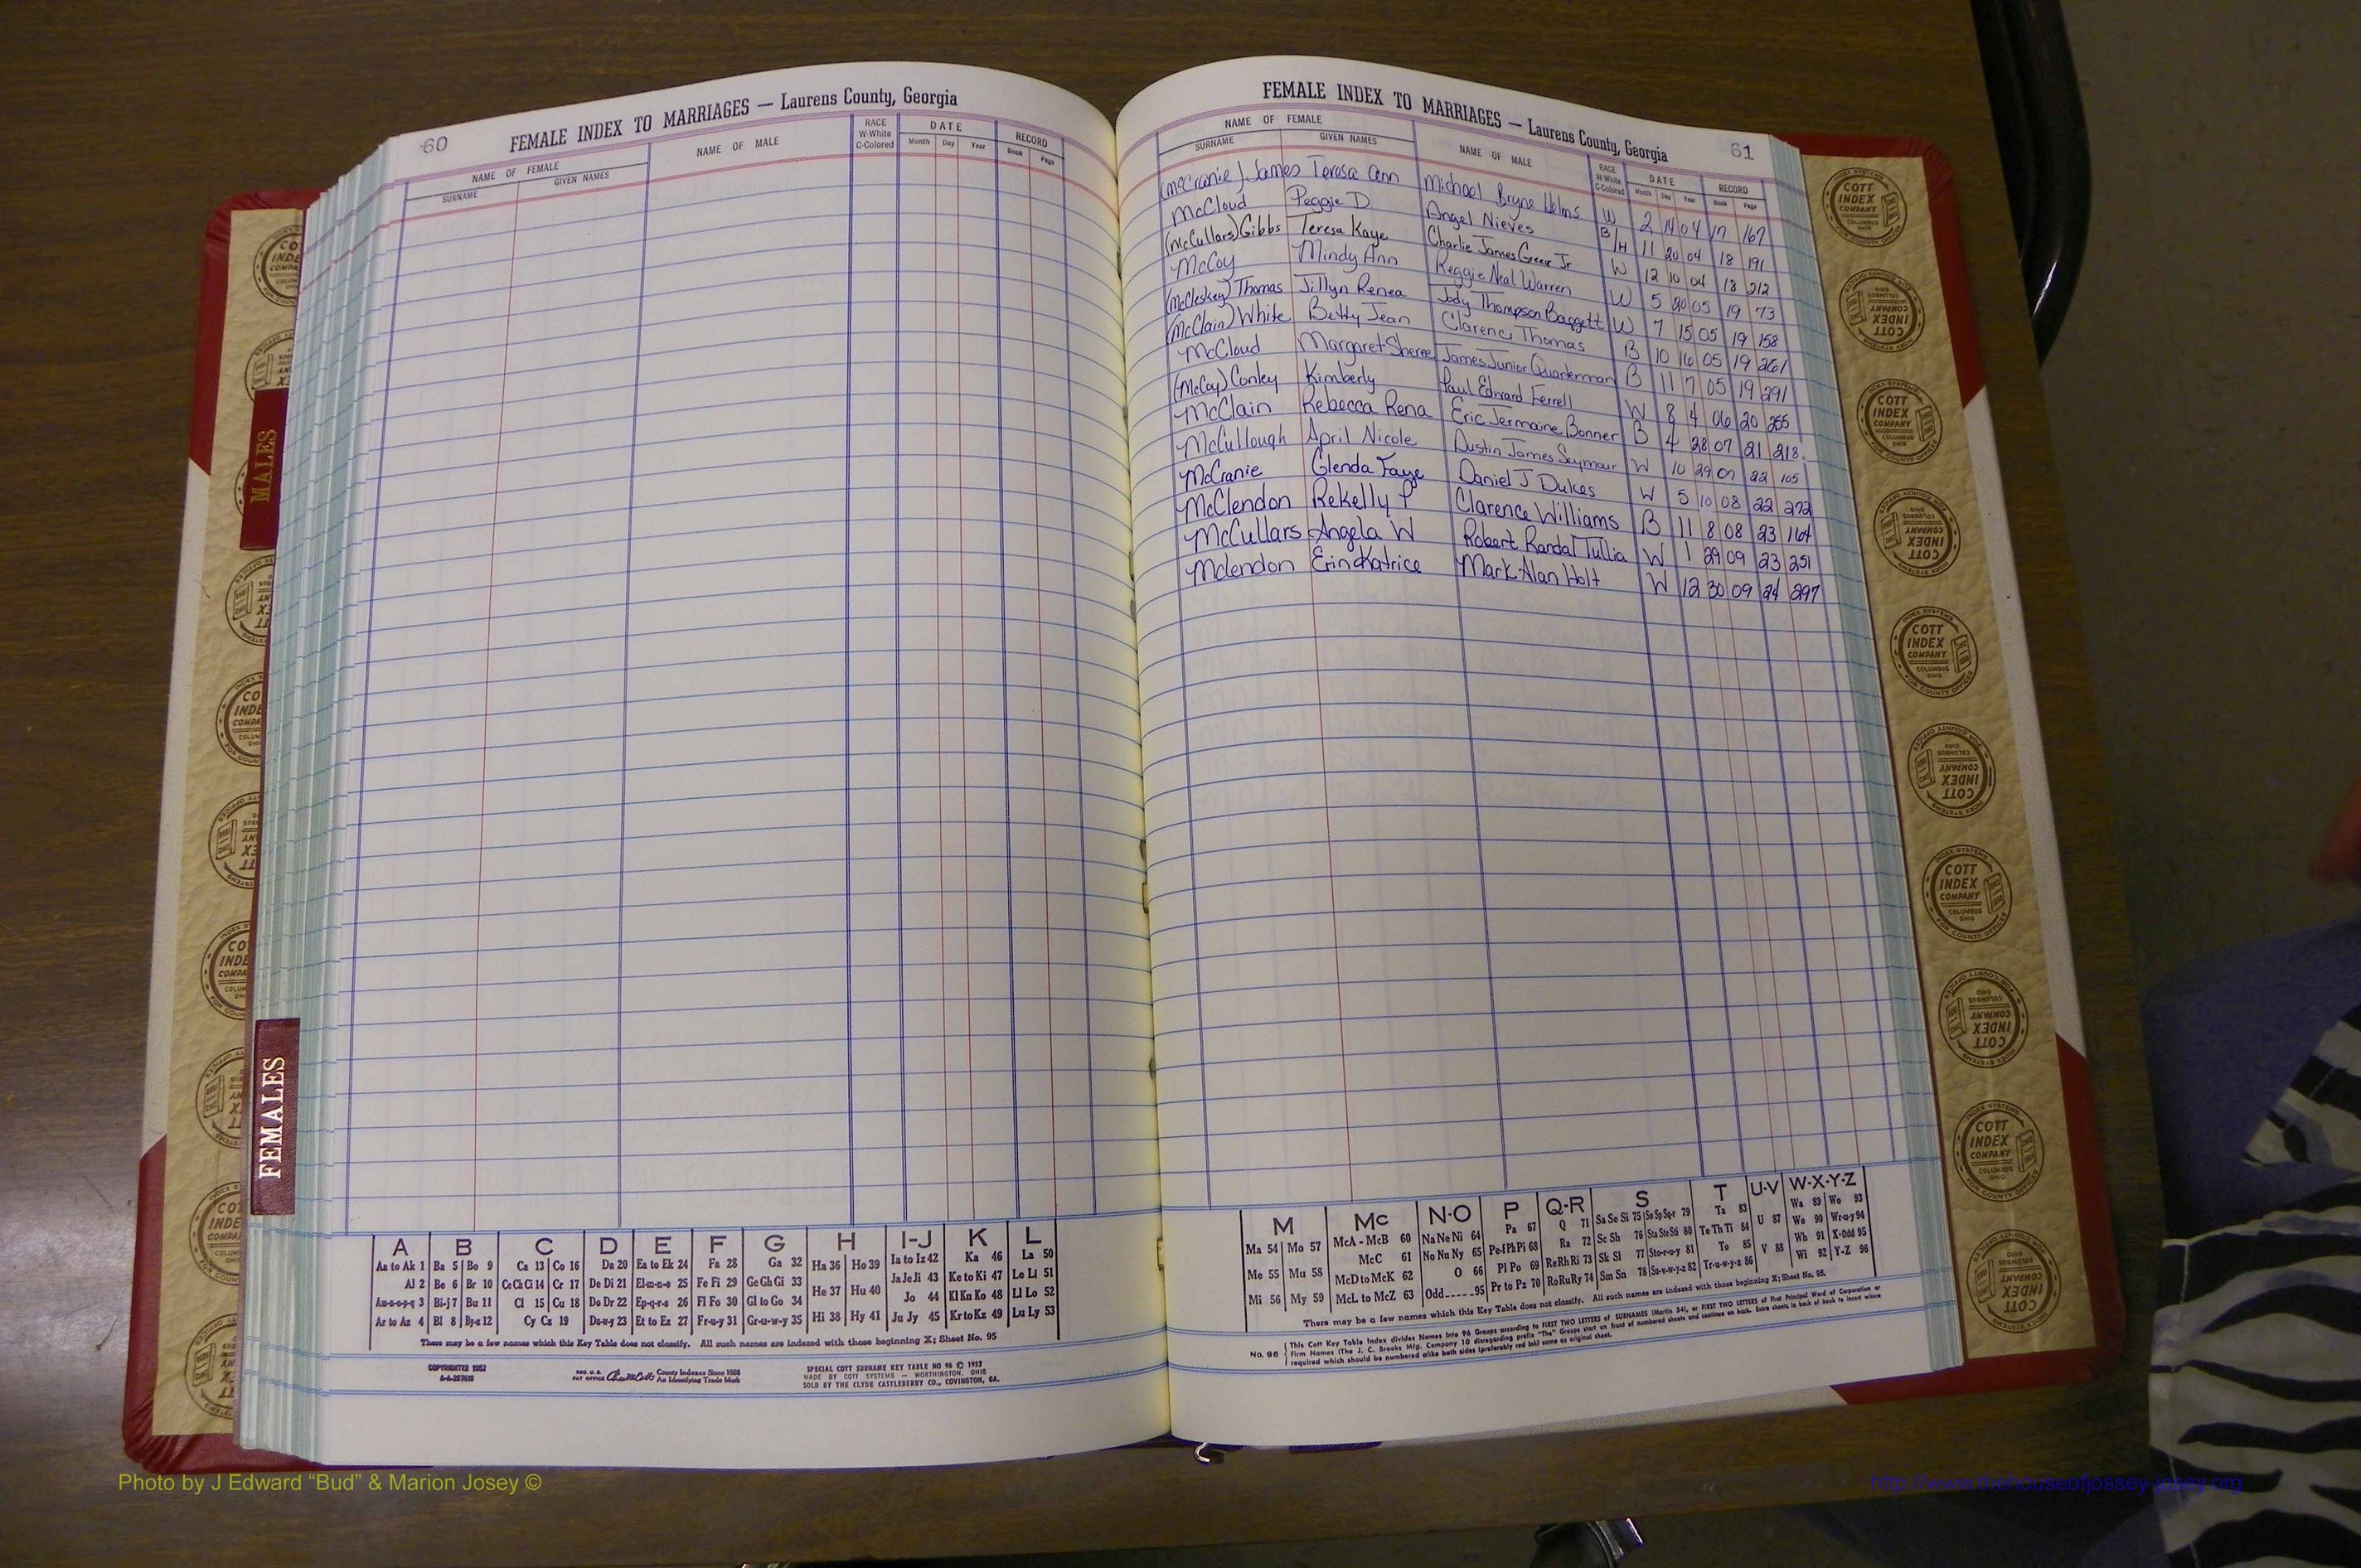 60
FEMALE INDEX TO MARRIAGES — Laurens County, Georgia
NAME OF FEMALE
SURNAME GIVEN NAMES
NAME OF MALE
RACE
W-White
C-Colored
DATE
Month Day Year
RECORD
Book Page
FEMALE INDEX TO MARRIAGES — Laurens County, Georgia
61
NAME OF FEMALE
SURNAME GIVEN NAMES
NAME OF MALE
RACE
W-White
C-Colored
DATE
Month Day Year
RECORD
Book Page
(McCranie) James Teresa Ann Michael Bryne Helms W 2 14 04 17 167
McCloud Peggie D. Angel Nieves B/H 11 20 04 18 191
(McCullars) Gibbs Teresa Kaye Charlie James Greer Jr W 12 10 04 18 212
McCoy Mindy Ann Reggie Neal Warren W 5 20 05 19 73
(McCleskey) Thomas Jillyn Renea Jody Thompson Baggett W 7 15 05 19 158
(McClain) White Betty Jean Clarence Thomas B 10 16 05 19 261
McCloud Margaret Sheree James Junior Quarterman B 11 7 05 19 291
(McCoy) Conley Kimberly Paul Edward Ferrell W 8 4 06 20 255
McClain Rebecca Rena Eric Jermaine Bonner B 4 28 07 21 218
McCullough April Nicole Dustin James Seymour W 10 29 07 22 105
McCranie Glenda Faye Daniel J Dukes W 5 10 08 22 272
McClendon Rekelly P Clarence Williams B 11 8 08 23 164
McCullars Angela W Robert Randal Tullia W 1 29 09 23 251
Mclendon Erin Katrice Mark Alan Holt W 12 30 09 24 297
MALES
FEMALES
A B C D E F G H I-J K L
Aa to Ak 1 Ba 5 Bo 9 Ca 13 Co 16 Da 20 Ea to Ek 24 Fa 28 Ga 32 Ha 36 Ho 39 Ia to Iz 42 Ka 46 La 50
Al 2 Be 6 Br 10 Ce Ch Ci 14 Cr 17 De Di 21 El-m-n-o 25 Fe Fi 29 Ge Gh Gi 33 He 37 Hu 40 Ja Je Ji 43 Ke to Ki 47 Le Li 51
Am-n-o-p-q 3 Bi-j 7 Bu 11 Cl 15 Cu 18 Do Dr 22 Ep-q-r-s 26 Fl Fo 30 Gl to Go 34 Jo 44 Kl Kn Ko 48 Ll Lo 52
Ar to Az 4 Bl 8 By-z 12 Cy Cz 19 Du-w-y 23 Et to Ez 27 Fr-u-y 31 Gr-u-w-y 35 Hi 38 Hy 41 Ju Jy 45 Kr to Kz 49 Lu Ly 53
There may be a few names which this Key Table does not classify. All such names are indexed with those beginning X; Sheet No. 95
COPYRIGHTED 1952
A-A-297610
REG U. S.
PAT OFFICE
County Indexes Since 1888
An Identifying Trade Mark
SPECIAL COTT SURNAME KEY TABLE NO 96 © 1952
MADE BY COTT SYSTEMS — WORTHINGTON, OHIO
SOLD BY THE CLYDE CASTLEBERRY CO., COVINGTON, GA.
M Mc N-O P Q-R S T U-V W-X-Y-Z
Ma 54 Mo 57 McA - McB 60 Na Ne Ni 64 Pa 67 Q 71 Sa Se Si 75 So Sp Sq-r 79 Ta 83 Wa 89 Wo 93
Me 55 Mu 58 McC 61 No Nu Ny 65 Pe-f Ph Pi 68 Ra 72 Sc Sh 76 Sta Ste Sti 80 Te Th Ti 84 U 87 We 90 Wr-u-y 94
Mi 56 My 59 McD to McK 62 O 66 Pl Po 69 Re Rh Ri 73 Sk Sl 77 Sto-r-u-y 81 To 85 V 88 Wh 91 X-Odd 95
McL to McZ 63 Odd-----95 Pr to Pz 70 Ro Ru Ry 74 Sm Sn 78 Su-v-w-y-z 82 Tr-u-w-y-z 86 Wi 92 Y-Z 96
There may be a few names which this Key Table does not classify. All such names are indexed with those beginning X; Sheet No. 95.
No. 96
This Cott Key Table Index divides Names into 96 Groups according to FIRST TWO LETTERS of SURNAMES (Martin 54), or FIRST TWO LETTERS of First Principal Word of Corporation or
Firm Names (The J. C. Brooks Mfg. Company 10 disregarding prefix "The" Groups start on front of numbered sheets and continue on back. Extra sheets in back of book to insert where
required which should be numbered alike both sides (preferably red ink) same as original sheet.
COTT
INDEX
COMPANY
COLUMBUS
OHIO
INDEX SYSTEMS
FOR COUNTY OFFICES
Photo by J Edward “Bud” & Marion Josey ©
http://www.thehouseofjossey-josey.org